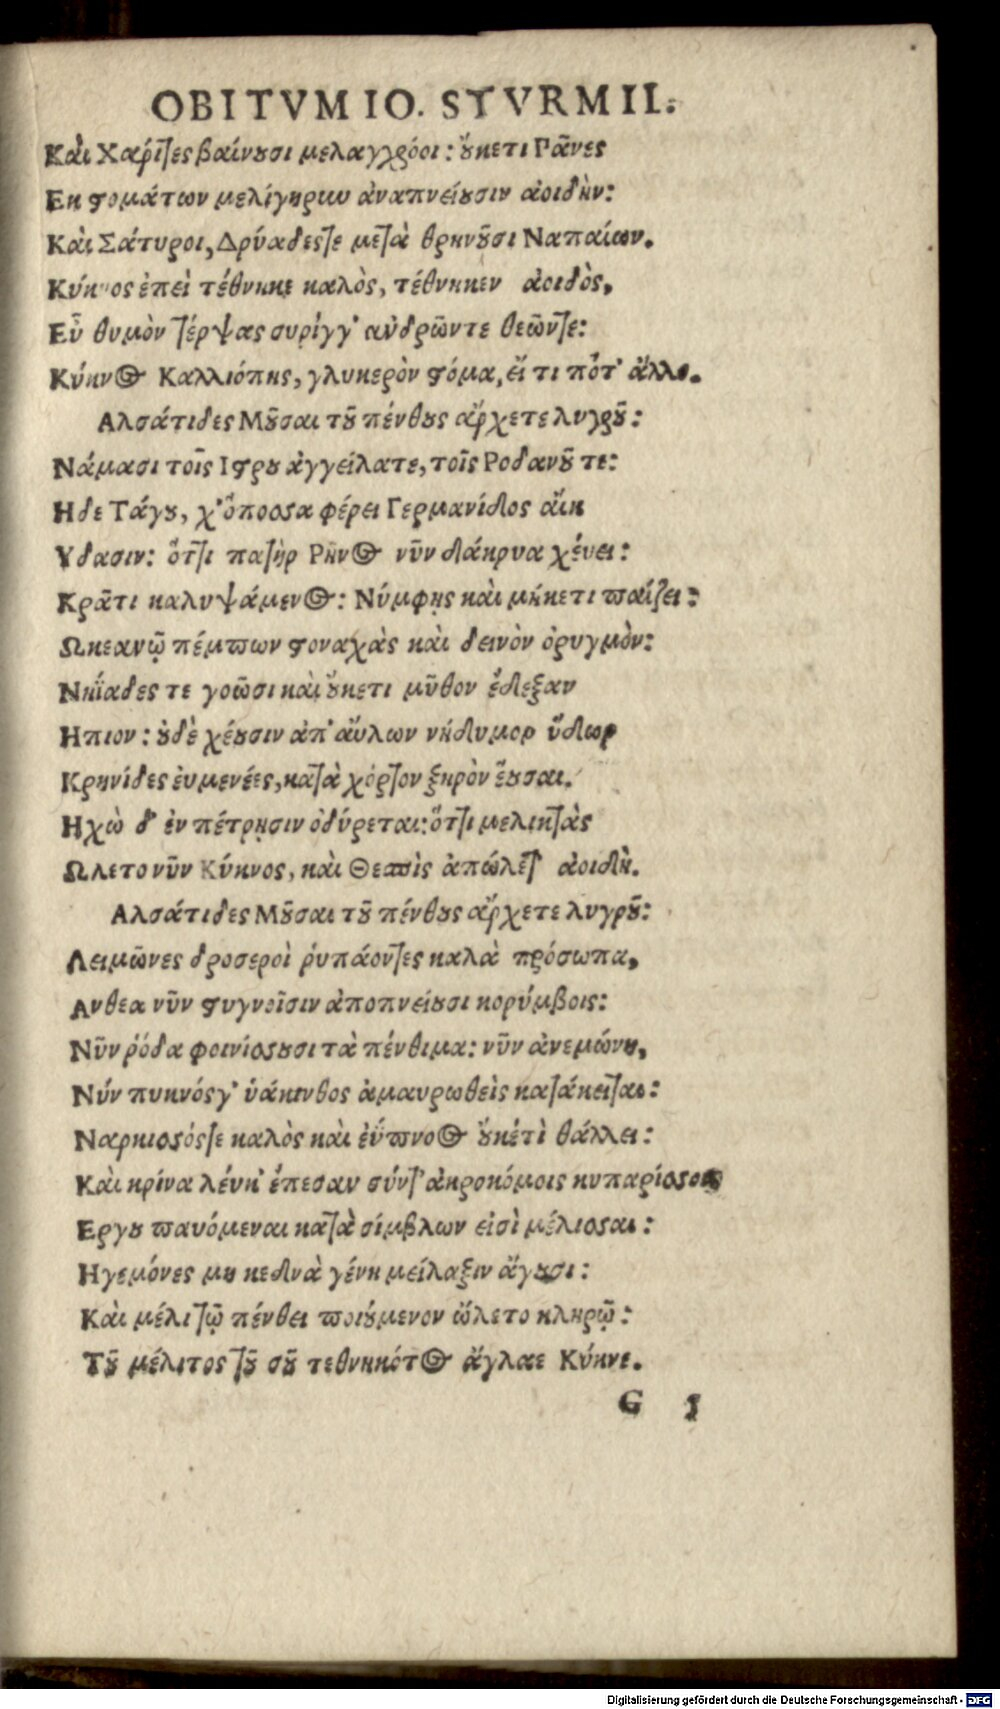 OBITVM IO. STVRMII.
Καὶ Χαρίτες βαίνουσι μελαγχρόοι: οὔκετι Ρᾶνες
Εκ στομάτων μελίγηρυν ἀναπνείουσιν ἀοιδὴν:
Καὶ Σάτυροι, Δρύαδεςτε μετὰ θρηνοῦσι Ναπαίων.
Κύκνος ἐπεὶ τέθνηκε καλὸς, τέθνηκεν ἀοιδὸς,
Εὖ θυμὸν τέρψας συρίγγ' ἀνδρῶντε θεῶντε:
Κύκνος Καλλιόπης, γλυκερὸν στόμα, εἴ τι πὄτ' ἄλλο.
Αλσάτιδες Μοῦσαι τοῦ πένθους ἄρχετε λυγροῦ:
Νάμασι τοῖς Ιστρου ἀγγείλατε, τοῖς Ροδανοῦ τε:
Ηδε Τάγου, χ' ὅποσσα φέρει Γερμανίδος αἴκ
Υδασιν: ὅττι πατὴρ Ρῆνος νῦν δάκρυα χέυει:
Κρᾶτι καλυψάμενος: Νύμφῃς καὶ μήκετι παίζει:
Ωκεανῷ πέμπων στοναχὰς καὶ δεινὸν ὀρυγμὸν:
Νηΐαδες τε γοῶσι καὶ οὔκετι μῦθον ἔδεξαν
Ηπιον: οὐδὲ χέουσιν ἀπ' ἄυλων νήδυμορ ὕδωρ
Κρηνίδες ἐυμενέες, κατὰ χόρτον ξηρὸν ἔουσαι.
Ηχὼ δ' ἐν πέτρῃσιν ὀδύρεται: ὅττι μελικτὰς
Ωλετο νῦν Κύκνος, καὶ Θεσπὶς ἀπώλετ' ἀοιδὴ.
Αλσάτιδες Μοῦσαι τοῦ πένθους ἄρχετε λυγροῦ:
Λειμῶνες δροσεροὶ ῥυπάοντες καλὰ πρόσωπα,
Ανθεα νῦν στυγνοῖσιν ἀποπνείουσι κορύμβοις:
Νῦν ῥόδα φοινίσσουσι τὰ πένθιμα: νῦν ἀνεμώνη,
Νύν πυκνόςγ' ὑάκινθος ἀμαυρωθεὶς κατάκειται:
Ναρκισσόςτε καλὸς καὶ ἐΰπνοος οὔκέτὶ θάλλει:
Καὶ κρίνα λέυκ' ἔπεσαν σύντ' ἀκροκόμοις κυπαρίσσοις
Εργου παυόμεναι κατὰ σίμβλων εἰσὶ μέλισσαι:
Ηγεμόνες μου κεδνὰ γένη μείλαξιν ἄγουσι:
Καὶ μέλι τῷ πένθει ποιούμενον ὤλετο κληρῷ:
Τοῦ μέλιτος τοῦ σοῦ τεθνηκότος ἄγλαε Κύκνε.
G 5
Digitalisierung gefördert durch die Deutsche Forschungsgemeinschaft - DFG